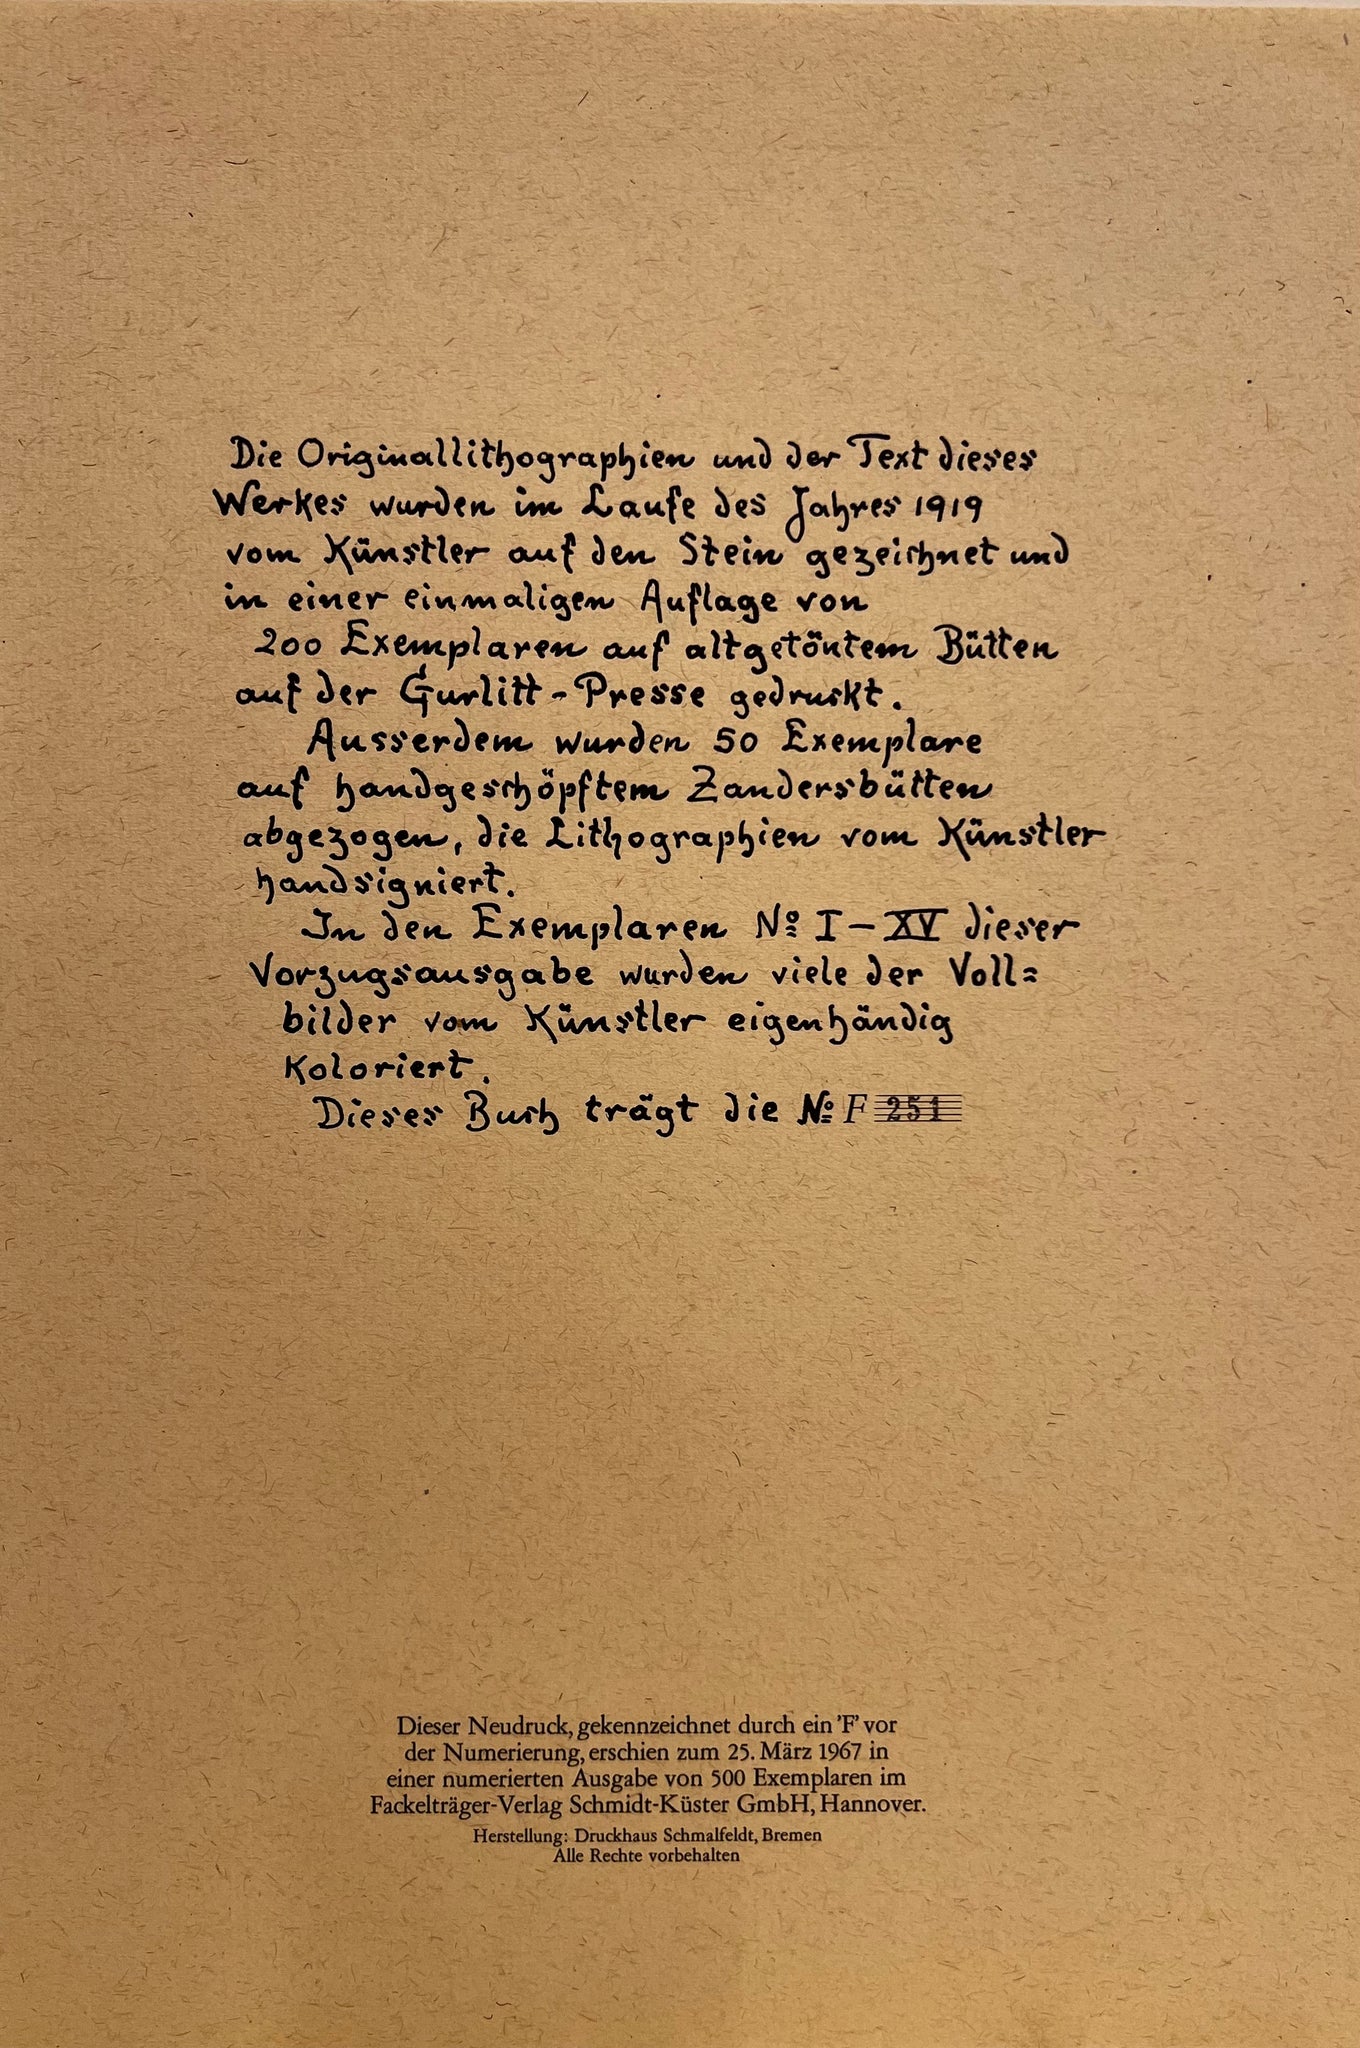 Die Originallithographien und der Text dieses
Werkes wurden im Laufe des Jahres 1919
vom Künstler auf den Stein gezeichnet und
in einer einmaligen Auflage von
200 Exemplaren auf altgetöntem Bütten
auf der Gurlitt-Presse gedruckt.
Ausserdem wurden 50 Exemplare
auf handgeschöpftem Zandersbütten
abgezogen, die Lithographien vom Künstler
handsigniert.
In den Exemplaren Nº I–XV dieser
Vorzugsausgabe wurden viele der Voll=
bilder vom Künstler eigenhändig
koloriert.
Dieses Buch trägt die Nº F 251
Dieser Neudruck, gekennzeichnet durch ein 'F' vor
der Numerierung, erschien zum 25. März 1967 in
einer numerierten Ausgabe von 500 Exemplaren im
Fackelträger-Verlag Schmidt-Küster GmbH, Hannover.
Herstellung: Druckhaus Schmalfeldt, Bremen
Alle Rechte vorbehalten